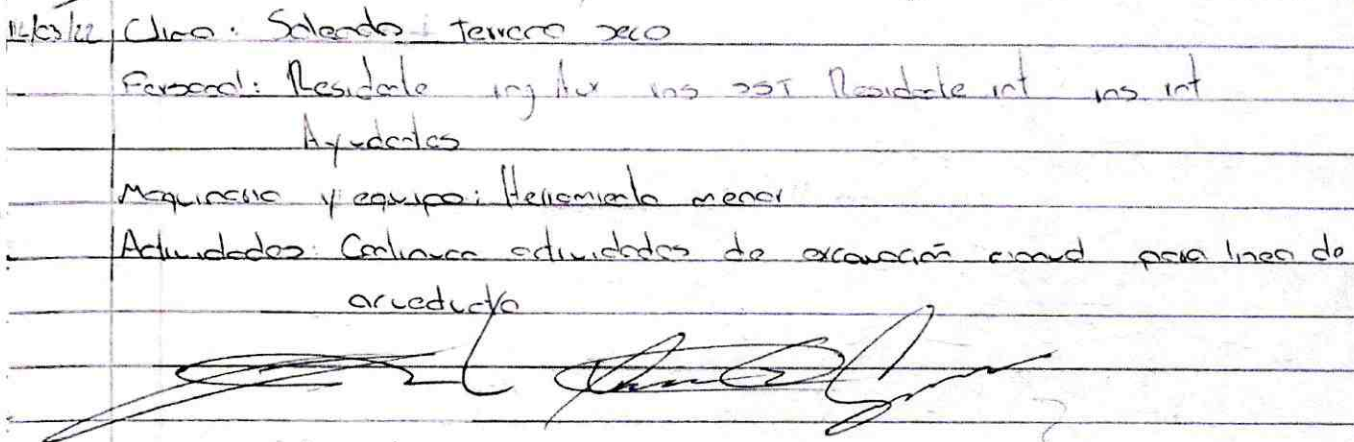 Clima: Soleado Terreno seco
Personal: Residente ing Aux ins SST Residente int ins int
Ayudantes
Maquinaria y equipo: Herramienta menor
Actividades: Continua actividades de excavación manual para linea de
acueducto